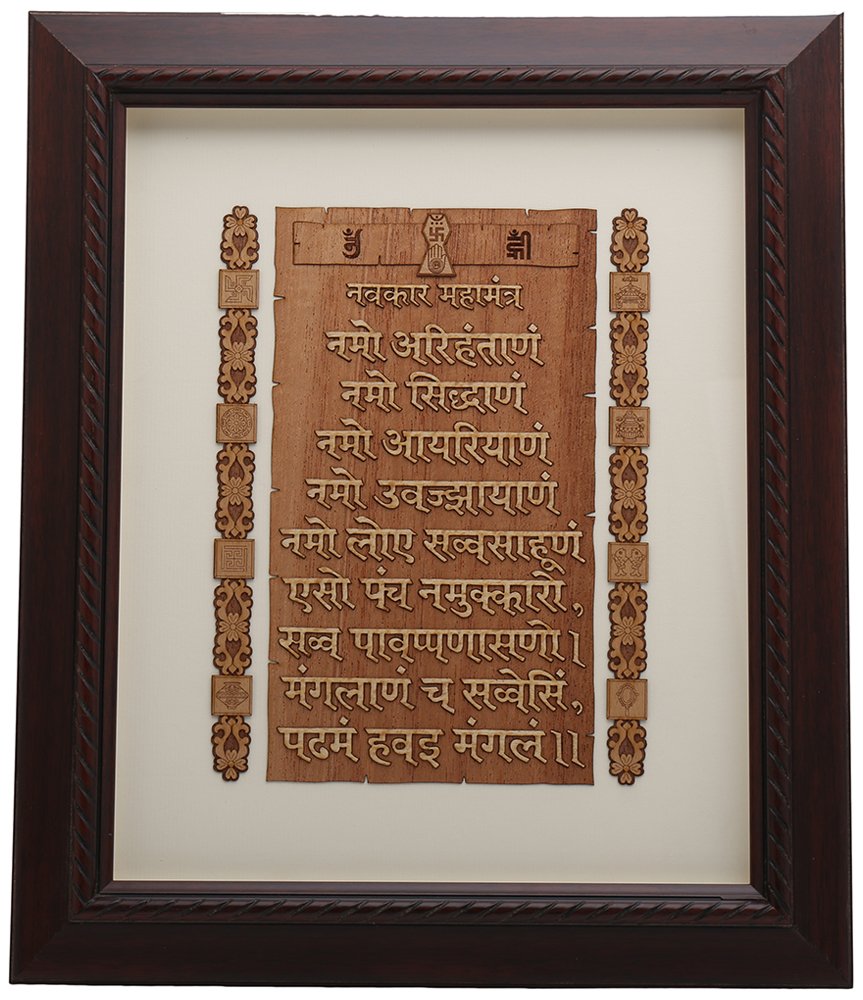 नवकार महामंत्र
नमो अरिहंताणं
नमो सिद्धाणं
नमो आयरियाणं
नमो उवज्झायाणं
नमो लोए सव्वसाहूणं
एसो पंच नमुक्कारो,
सव्व पावप्पणासणो।
मंगलाणं च सव्वेसिं,
पढमं हवइ मंगलं।।